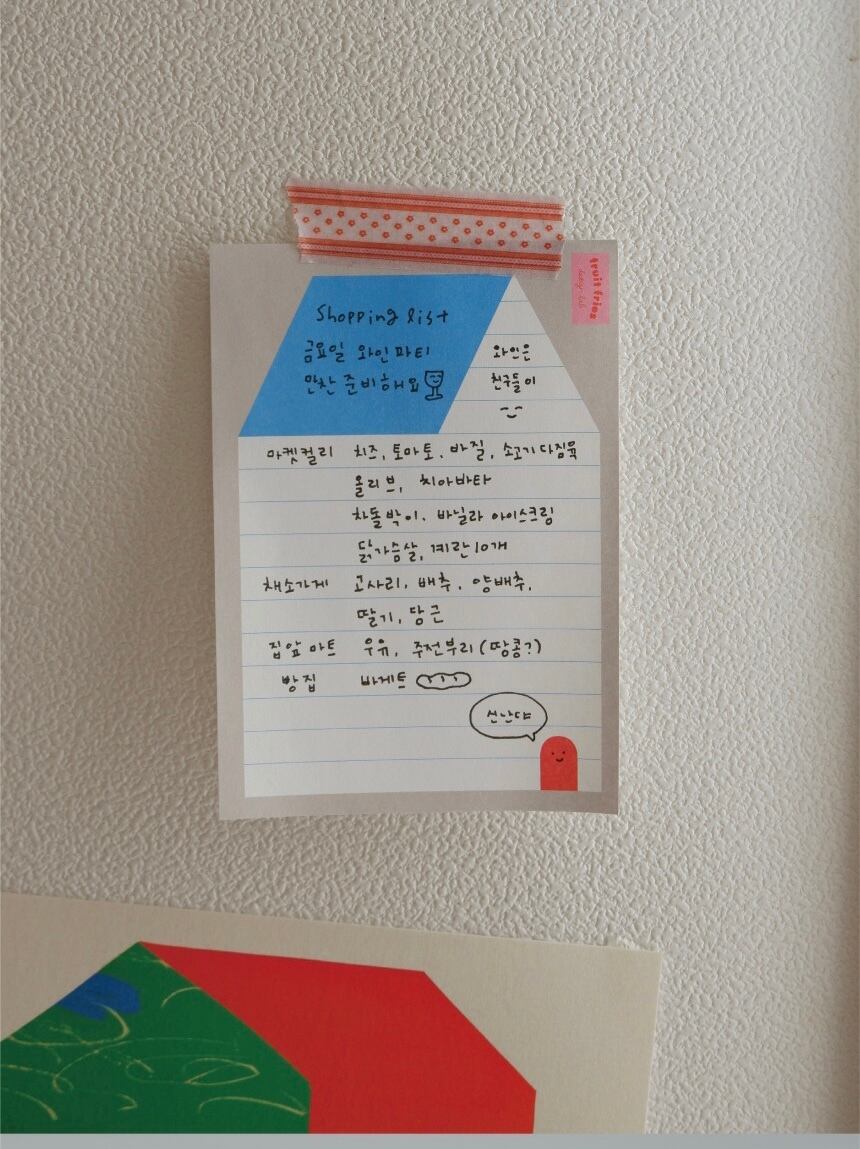 Shopping list
금요일 와인파티
만찬 준비해요
와인은
친구들이
마켓컬리 치즈, 토마토, 바질, 소고기다짐육
올리브, 치아바타
차돌박이, 바닐라 아이스크림
닭가슴살, 계란10개
채소가게 고사리, 배추, 양배추,
딸기, 당근
집앞 마트 우유, 주전부리(땅콩?)
빵집 바게트
신난다
fruit fries